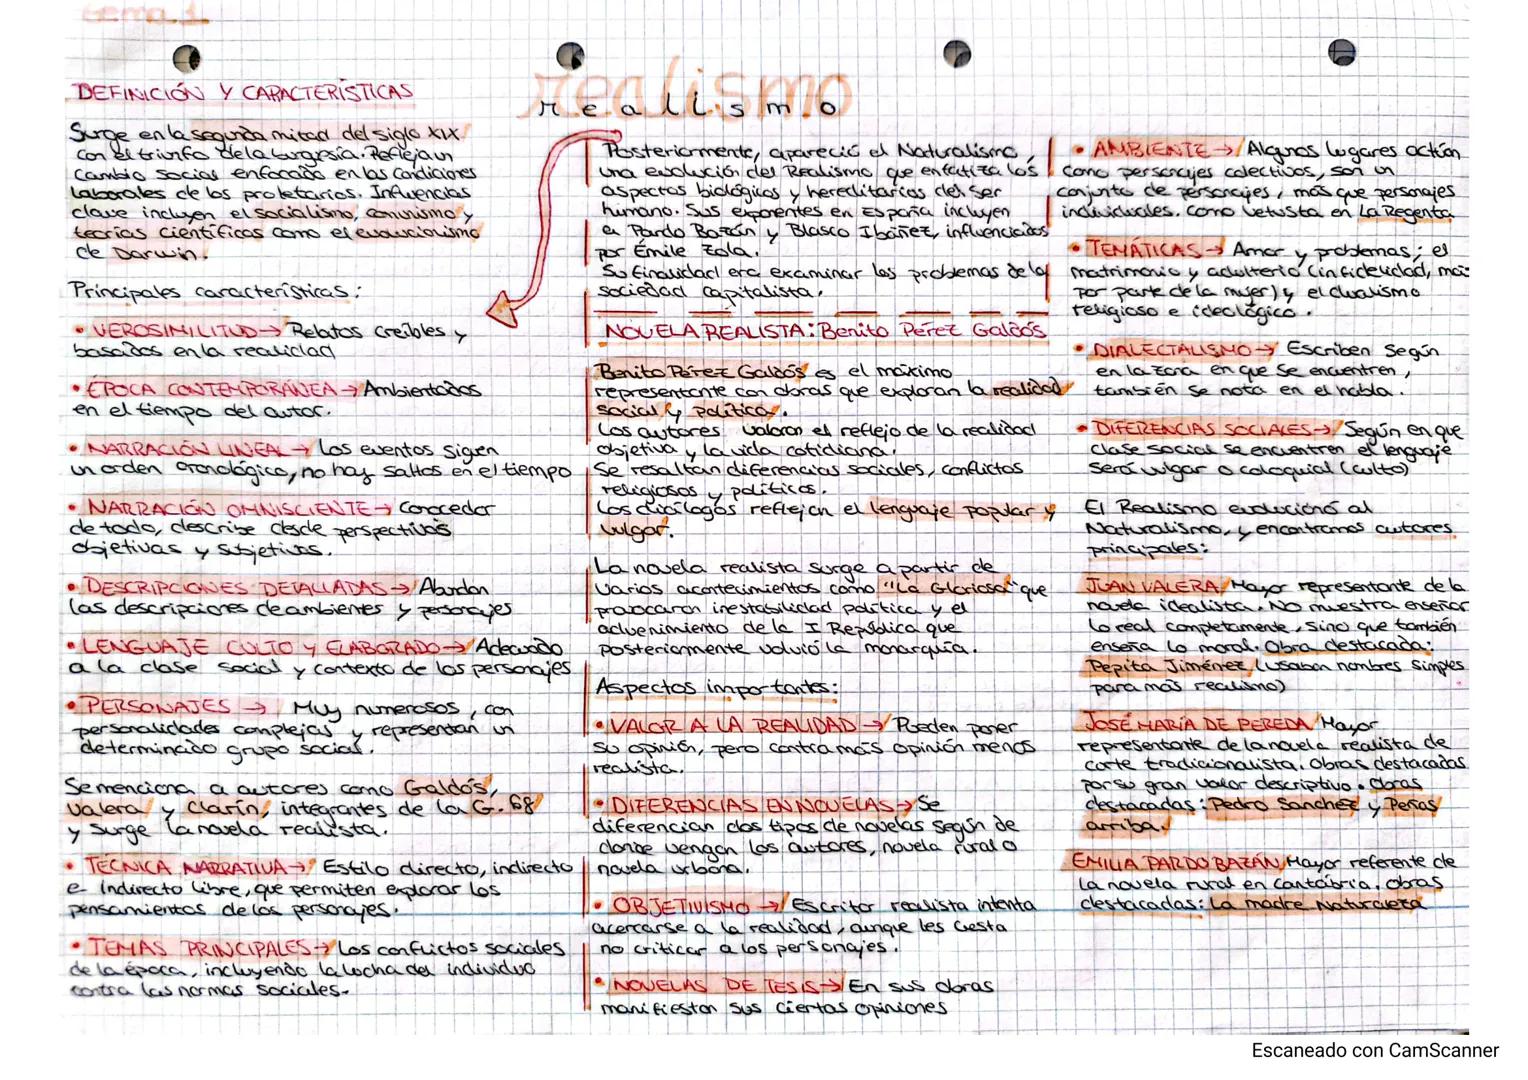 tema 1
realismo
realismo
DEFINICIÓN Y CARACTERÍSTICAS
Surge en la segunda mitad del siglo XIX
con el triunfo de la burgesía. Refleja un
cambio social enfocado en las condiciones
laborales de los proletarios. Influencias
clave incluyen el socialismo, comunismo y
teorías científicas como el evolucionismo
de Darwin.
Principales características:
• VEROSIMILITUD → Relatos creíbles y
basados en la realidad
• ÉPOCA CONTEMPORÁNEA → Ambientados
en el tiempo del autor.
• NARRACIÓN LINEAL → Los eventos sigen
un orden cronológico, no hay saltos en el tiempo
• NARRACIÓN OMNISCIENTE → Conocedor
de todo, describe desde perspectivas
objetivas y subjetivas.
• DESCRIPCIONES DETALLADAS → Abundan
las descripciones de ambientes y personajes
• LENGUAJE CULTO Y ELABORADO → Adecuado
a la clase social y contexto de los personajes
• PERSONAJES → Muy numerosos, con
personalidades complejas y representan un
determinado grupo social.
Se menciona a autores como Galdós,
Valera y Clarín, integrantes de la G. 68
y surge la novela realista.
• TÉCNICA NARRATIVA → Estilo directo, indirecto
e indirecto libre, que permiten explorar los
pensamientos de los personajes.
• TEMAS PRINCIPALES → Los conflictos sociales
de la época, incluyendo la lucha del individuo
contra las normas sociales.
Posteriormente, apareció el Naturalismo,
una evolución del Realismo que enfatiza los
aspectos biológicos y hereditarios del ser
humano. Sus exponentes en España incluyen
a Pardo Bazán y Blasco Ibáñez, influenciados
por Émile Zola.
Su finalidad era examinar los problemas de la
sociedad capitalista.
NOVELA REALISTA: Benito Pérez Galdós
Benito Pérez Galdós es el máximo
representante con obras que exploran la realidad
social y política.
Los autores valoran el reflejo de la realidad
objetiva y la vida cotidiana.
Se resaltan diferencias sociales, conflictos
religiosos y políticos.
Los diálogos reflejan el lenguaje popular y
vulgar.
La novela realista surge a partir de
varios acontecimientos como "La Gloriosa" que
provocaron inestabilidad política y el
advenimiento de la I República que
posteriormente volvió la monarquía.
Aspectos importantes:
• VALOR A LA REALIDAD → Pueden poner
su opinión, pero contra más opinión menos
realista.
• DIFERENCIAS EN NOVELAS → Se
diferencian dos tipos de novelas según de
donde vengan los autores, novela rural o
novela urbana.
• OBJETIVISMO → Escritor realista intenta
acercarse a la realidad, aunque les cuesta
no criticar a los personajes.
• NOVELAS DE TESIS → En sus obras
manifiestan sus ciertas opiniones
• AMBIENTE → Algunos lugares actúan
como personajes colectivos, son un
conjunto de personajes, más que personajes
individuales. Como Vetusta en La Regenta
• TEMÁTICAS → Amor y problemas; el
matrimonio y adulterio (infidelidad, más
por parte de la mujer) y el dualismo
religioso e ideológico.
• DIALECTALISMO → Escriben según
en la zona en que se encuentren,
también se nota en el habla.
• DIFERENCIAS SOCIALES → Según en que
clase social se encuentren el lenguaje
será vulgar o coloquial (culto)
El Realismo evolucionó al
Naturalismo, y encontramos autores
principales:
JUAN VALERA/ Mayor representante de la
novela idealista. No muestra enseñar
lo real completamente, sino que también
enseña lo moral. Obra destacada:
Pepita Jiménez (usaban nombres simples
para más realismo)
JOSÉ MARÍA DE PEREDA/ Mayor
representante de la novela realista de
corte tradicionalista. Obras destacadas
por su gran valor descriptivo. Obras
destacadas: Pedro Sánchez y Peñas
arriba.
EMILIA PARDO BAZÁN/ Mayor referente de
la novela rural en Cantabria. Obras
destacadas: La madre Naturaleza
Escaneado con CamScanner